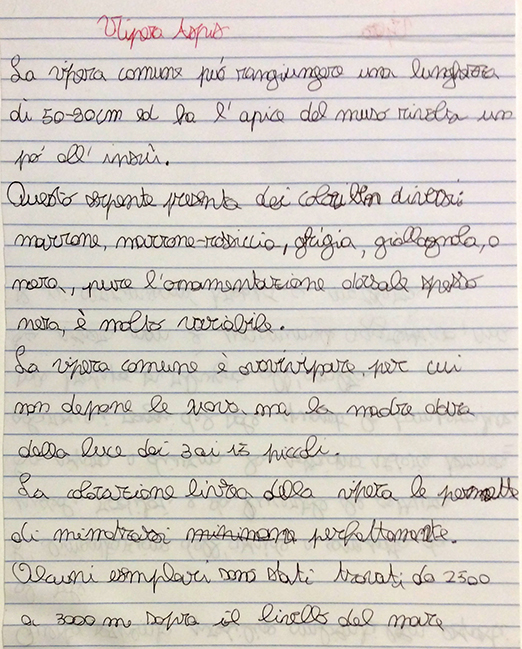 Vipera Aspis
La vipera comune può rangiungere una lunghezza
di 50-90cm ed ha l'apice del muso rivolta un
pó all' insù.
Questo serpente presenta dei colori diversi
marrone, marrone-rossiccio, grigia, giallognola, o
nera, pure l'ornamentazione dorsale spesso
nera, è molto variabile.
La vipera comune è ovovivipara, per cui
non depone le uova ma la madre
dalla luce dai 3 ai 15 piccoli.
La colorazione della vipera le permette
di mimetrarsi perfettamente.
Alcuni esemplari sono stati trovati da 2500
a 3000 m sopra il livello del mare